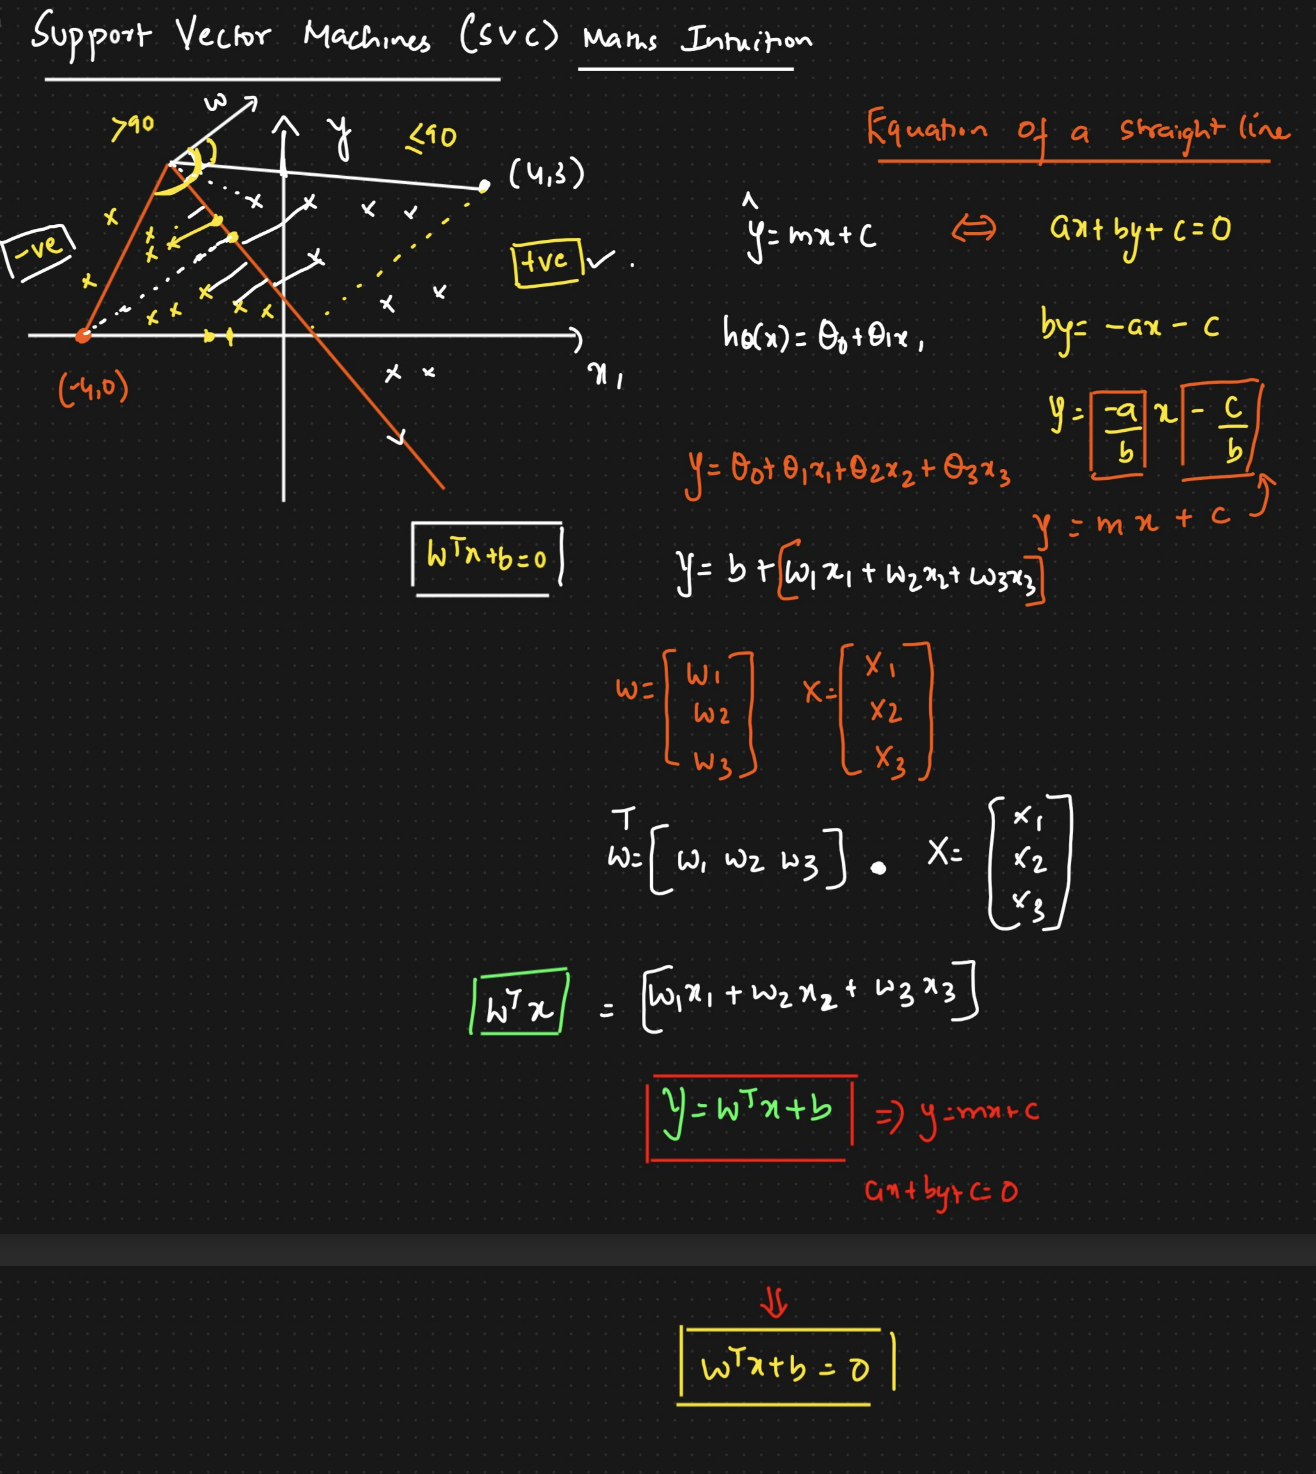 Support Vector Machines (SVC) Maths Intuition
>90
w
y
≤90
(4,3)
-ve
+ve ✓ .
(-4,0)
x1
wᵀx+b=0
Equation of a straight line
ŷ=mx+c ⇔ ax+by+c=0
hθ(x)=θ0+θ1x1
by= -ax - c
y= -a/b x - c/b
y = mx + c
y=θ0+θ1x1+θ2x2+θ3x3
y= b+[w1x1+w2x2+w3x3]
w=[w1 w2 w3] x=[x1 x2 x3]
wᵀ=[w1 w2 w3] . x=[x1 x2 x3]
wᵀx = [w1x1+w2x2+w3x3]
y=wᵀx+b ⇒ y=mx+c
ax+by+c=0
⇓
wᵀx+b=0